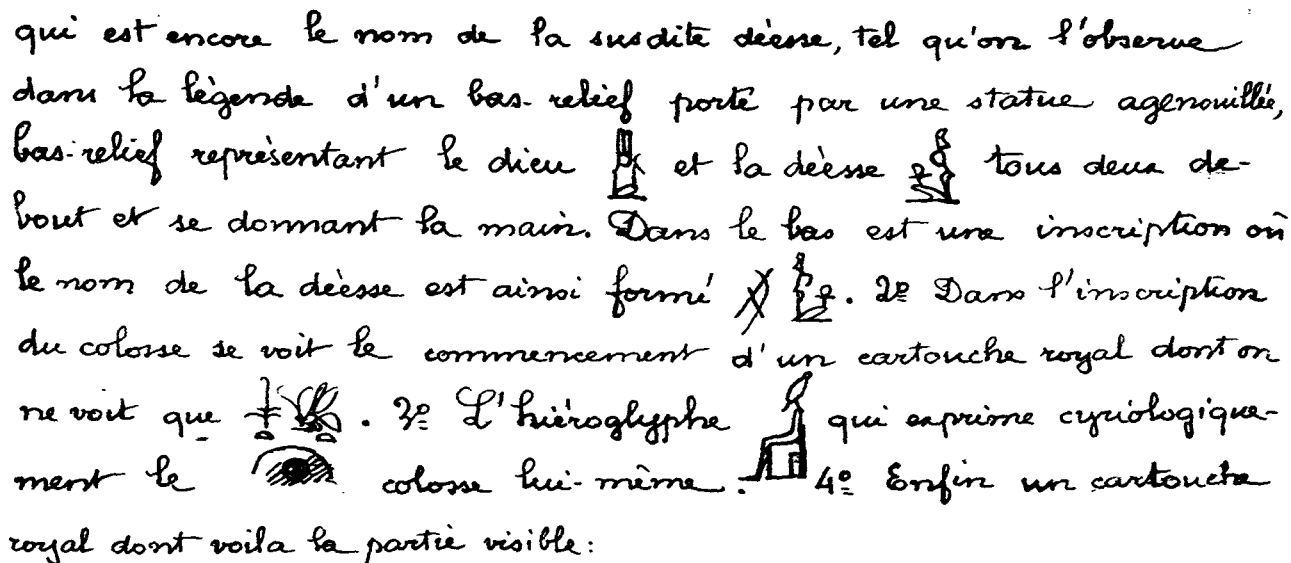 qui est encore le nom de la susdite déesse, tel qu'on l'observe
dans la légende d'un bas-relief porté par une statue agenouillée,
bas-relief représentant le dieu et la déesse tous deux de-
bout et se donnant la main. Dans le bas est une inscription où
le nom de la déesse est ainsi formé . 2º Dans l'inscription
du colosse se voit le commencement d'un cartouche royal dont on
ne voit que . 3º L'hiéroglyphe qui exprime cyriologique-
ment le colosse lui-même. 4º Enfin un cartouche
royal dont voila la partie visible: